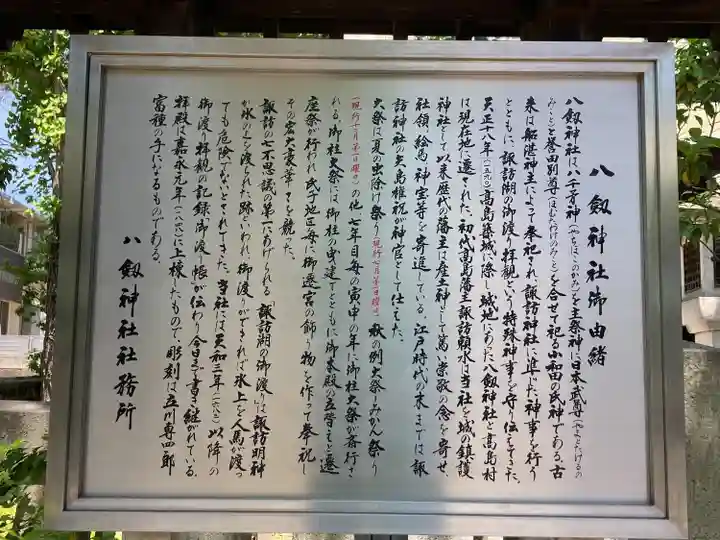 八劔神社御由緒
八劔神社は八千矛神(やちほこのかみ)を主祭神に日本武尊(やまとたけるの
みこと)と誉田別尊(ほむたわけのみこと)を合せて祀る小和田の氏神である。古
来は船湛神主によって奉祀され、諏訪神社に準じた神事を行う
とともに、諏訪湖の御渡り拝観という特殊神事を守り伝えてきた。
天正十八年(一五九〇)高島築城に際し城地にあった八劔神社と高島村
は現在地に遷された。初代高島藩主諏訪頼水は当社を城の鎮護
神社として以来歴代の藩主は産土神として篤い崇敬の念を寄せ、
社領、絵馬、神宝等を寄進している。江戸時代の末までは諏
訪神社の矢島権祝が神官として仕えた。
大祭は夏の虫除け祭り(現行七月第一日曜日)、秋の例大祭-みかん祭り
(現行十月第一日曜日)の他、七年目毎の寅申の年に御柱大祭が斎行さ
れる。御柱大祭には、御柱の曳建てとともに御本殿の立替えと遷
座祭が行われ、氏子地区毎に御遷宮の飾り物を作って奉祝し
その宏大豪華さを競った。
諏訪の七不思議の第一にあげられる「諏訪湖の御渡り」は、諏訪明神
が氷の上を渡られた跡といわれ、御渡りができれば氷上を人馬が渡っ
ても危険でないとされてきた。当社には天和三年(一六八三)以降の
御渡り拝観の記録「御渡り帳」が伝わり今日まで書き継がれている。
拝殿は嘉永元年(一八四八)に上棟したもので、彫刻は立川専四郎
富種の手になるものである。
八劔神社社務所